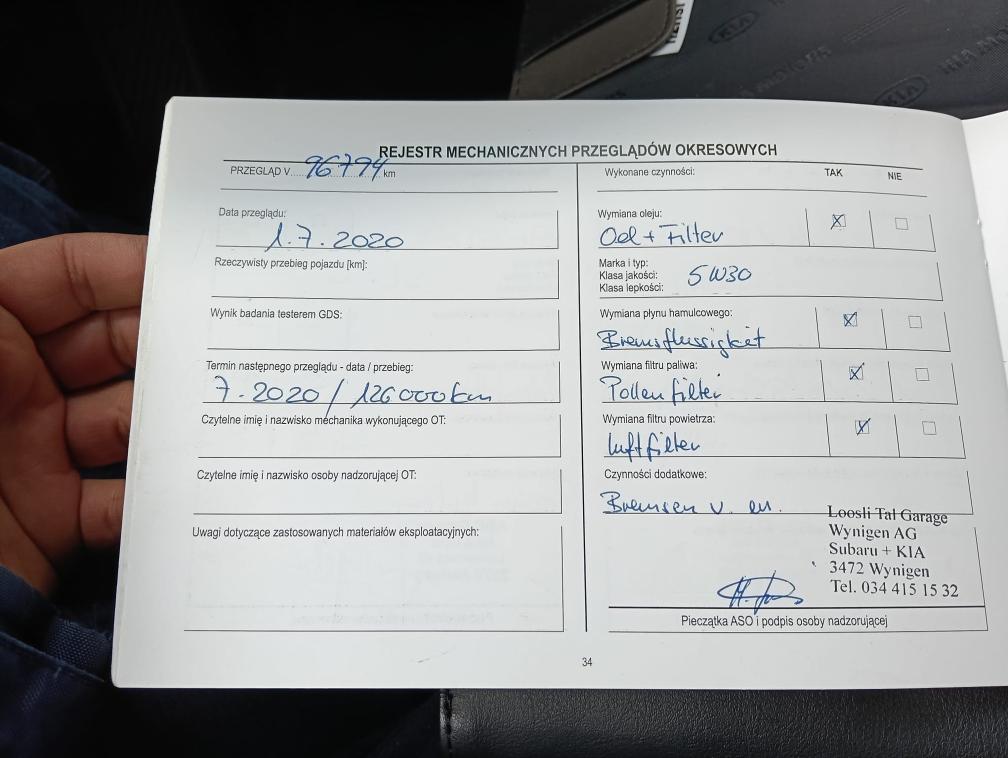 REJESTR MECHANICZNYCH PRZEGLĄDÓW OKRESOWYCH
PRZEGLĄD V.....96794 km
Data przeglądu:
1.7.2020
Rzeczywisty przebieg pojazdu [km]:
Wynik badania testerem GDS:
Termin następnego przeglądu - data / przebieg:
7.2020 / 126000km
Czytelne imię i nazwisko mechanika wykonującego OT:
Czytelne imię i nazwisko osoby nadzorującej OT:
Uwagi dotyczące zastosowanych materiałów eksploatacyjnych:
Wykonane czynności: TAK NIE
Wymiana oleju:
Oel + Filter
Marka i typ:
Klasa jakości: 5W30
Klasa lepkości:
Wymiana płynu hamulcowego:
Bremsflussigkeit
Wymiana filtru paliwa:
Pollenfilter
Wymiana filtru powietrza:
Luftfilter
Czynności dodatkowe:
Bremsen v.
Loosli Tal Garage
Wynigen AG
Subaru + KIA
3472 Wynigen
Tel. 034 415 15 32
Pieczątka ASO i podpis osoby nadzorującej
34
KIA
KIA MOTORS